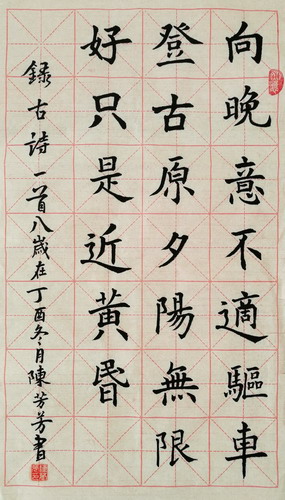 向晚意不適驅車
登古原夕陽無限
好只是近黃昬
錄古詩一首八歲在丁酉冬月陳芳芳書